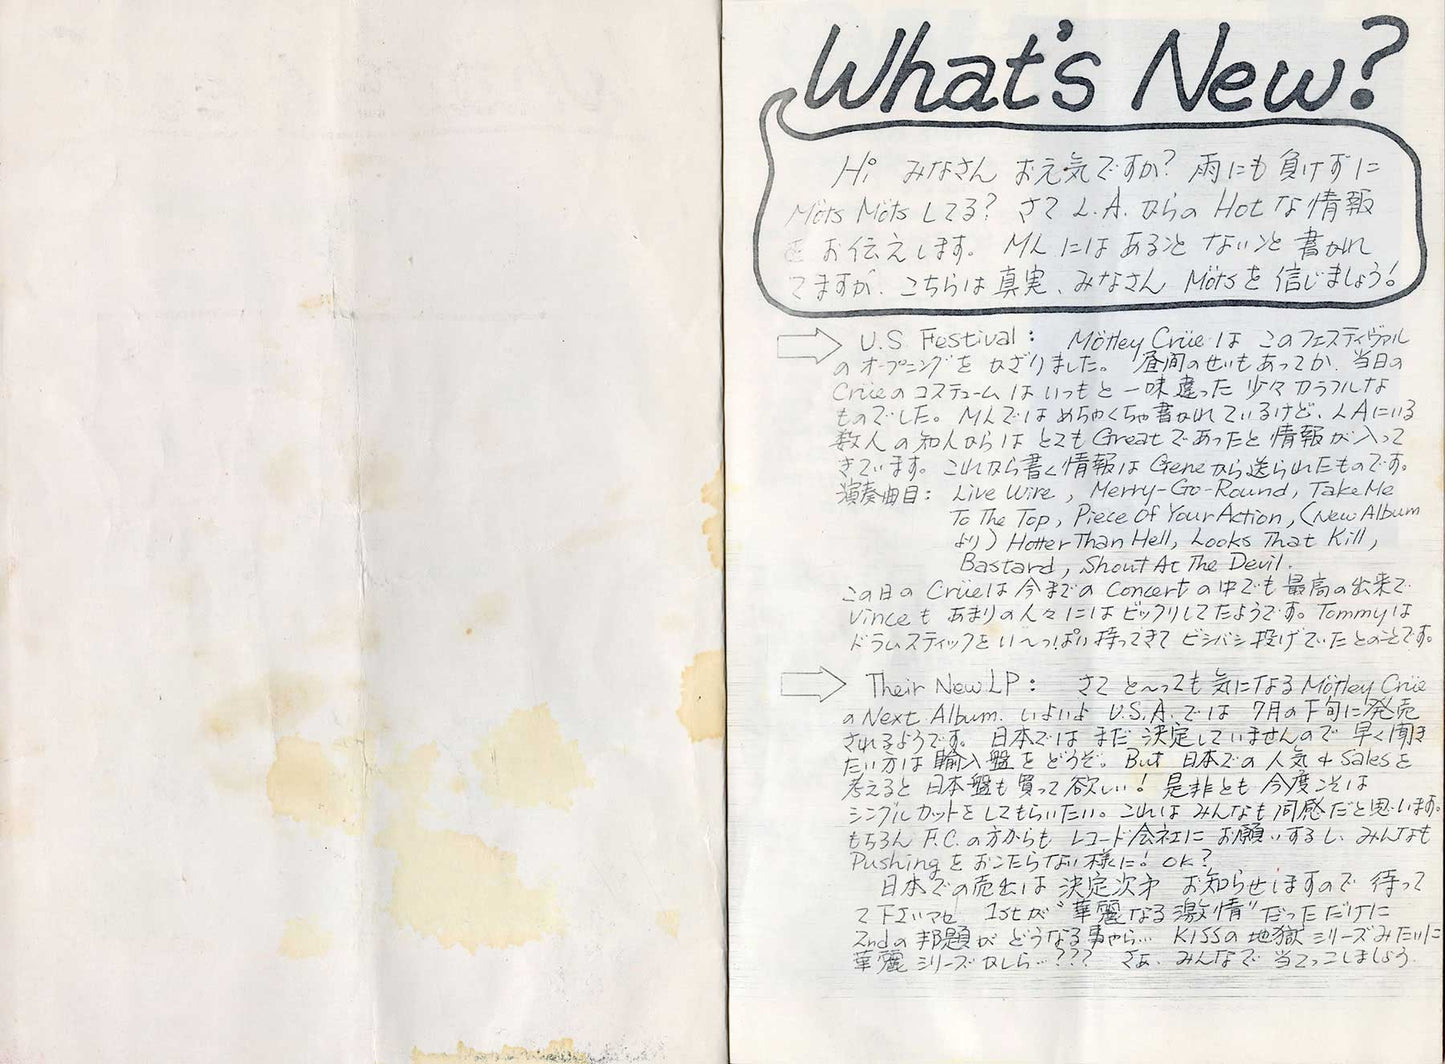 What's New?
Hi みなさん お元気ですか? 雨にも負けずに
Möts Möts してる? さて L.A. からの Hot な情報
を お伝えします。 MLにはあること ないこと 書かれ
てますが、こちらは真実、みなさん Mötsを信じましょう!
U.S Festival: Mötley Crüe は このフェスティヴァル
のオープニングを かざりました。 昼間のせいもあってか、当日の
Crüeのコスチュームは いつもと一味違った 少々カラフルな
ものでした。 MLでは めちゃくちゃ書かれているけど、LAにいる
数人の知人からは とてもGreatであったと 情報が入って
きています。 これから書く情報は Geneから送られたものです。
演奏曲目: Live Wire, Merry-Go-Round, Take Me
To The Top, Piece Of Your Action, (New Album
より) Hotter Than Hell, Looks That Kill,
Bastard, Shout At The Devil.
この日の Crüeは 今までの Concert の中でも 最高の出来で
Vinceも あまりの人々にはビックリしてたようです。 Tommyは
ドラムスティックをい〜っぱい持ってきて ビシバシ投げていたとのことです。
Their New LP: さて と〜っても 気になる Mötley Crüe
の Next Album. いよいよ U.S.A. では 7月の下旬に発売
されるようです。 日本では まだ 決定していませんので 早く聞き
たい方は 輸入盤を どうぞ。 But 日本での人気 & Salesを
考えると 日本盤も買って欲しい! 是非とも 今度こそは
シングルカットをしてもらいたい。 これは みんなも同感だと思います。
もちろん F.C.の方からも レコード会社に お願いするし、みんなも
Pushingを おこたらない様に! OK?
日本での売出は 決定次才 お知らせしますので 待って
て下エいマセ 1stが“華麗なる激情”だっただけに
2ndの邦題が どうなる事やら… KISSの地獄シリーズみたいに
華麗シリーズかしら…??? さぁ、みんなで 当てっこしましょう.